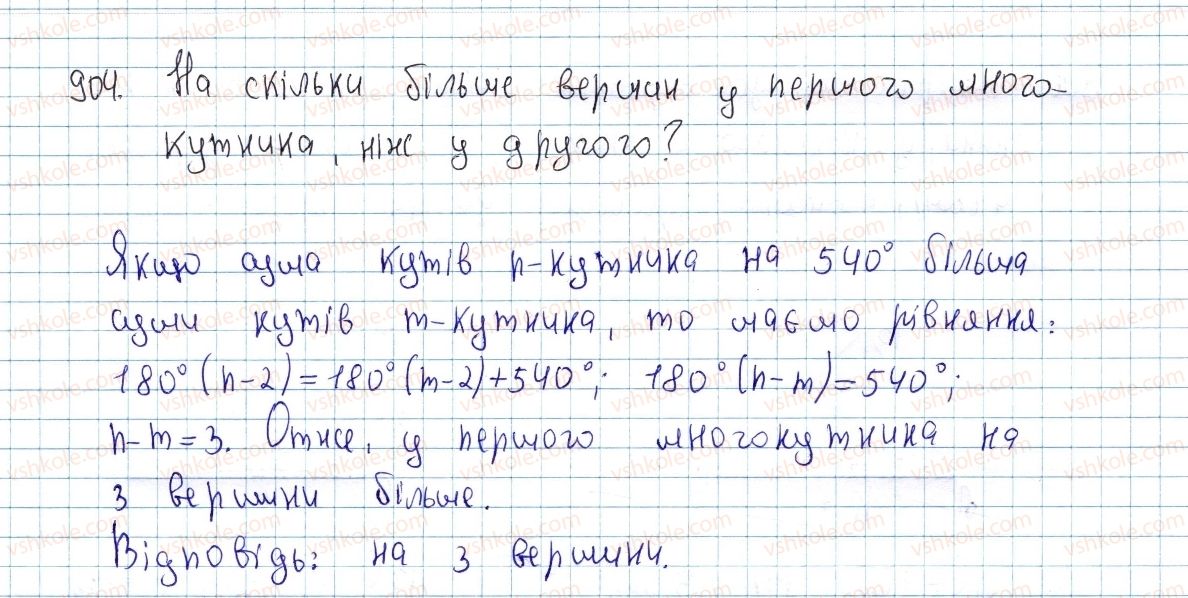 904. На скільки більше вершин у першого много-
кутника, ніж у другого?
Якщо сума кутів n-кутника на 540° більша
суми кутів m-кутника, то маємо рівняння:
180°(n-2)=180°(m-2)+540°; 180°(n-m)=540°;
n-m=3. Отже, у першого многокутника на
3 вершини більше.
Відповідь: на 3 вершини.